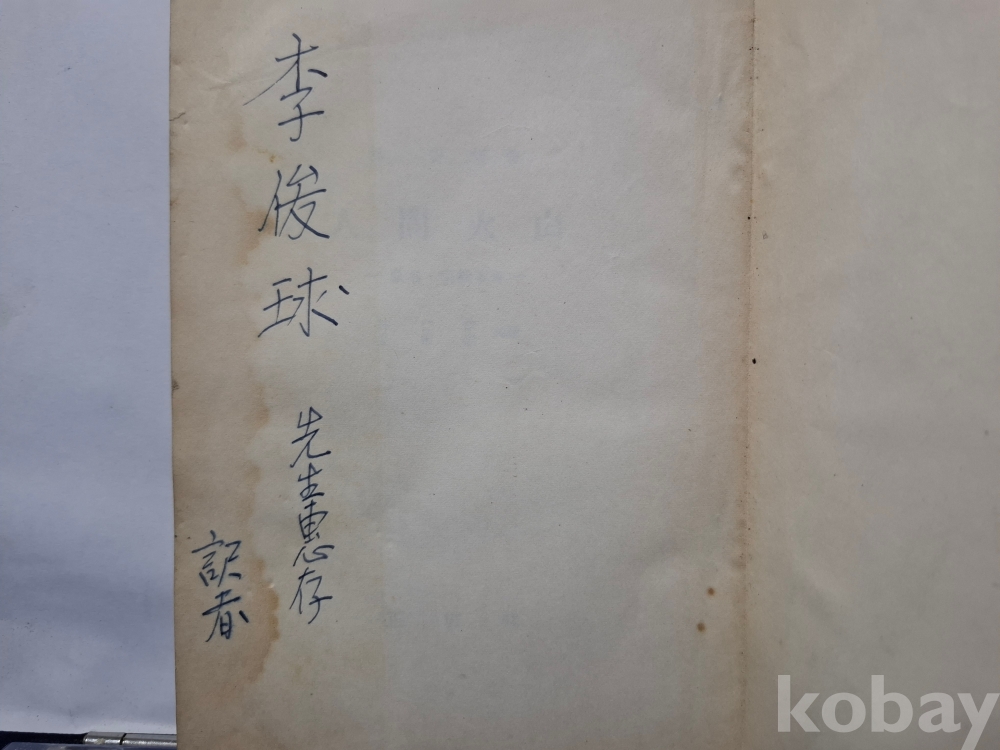 李俊球 先生惠存
訳者
kobay